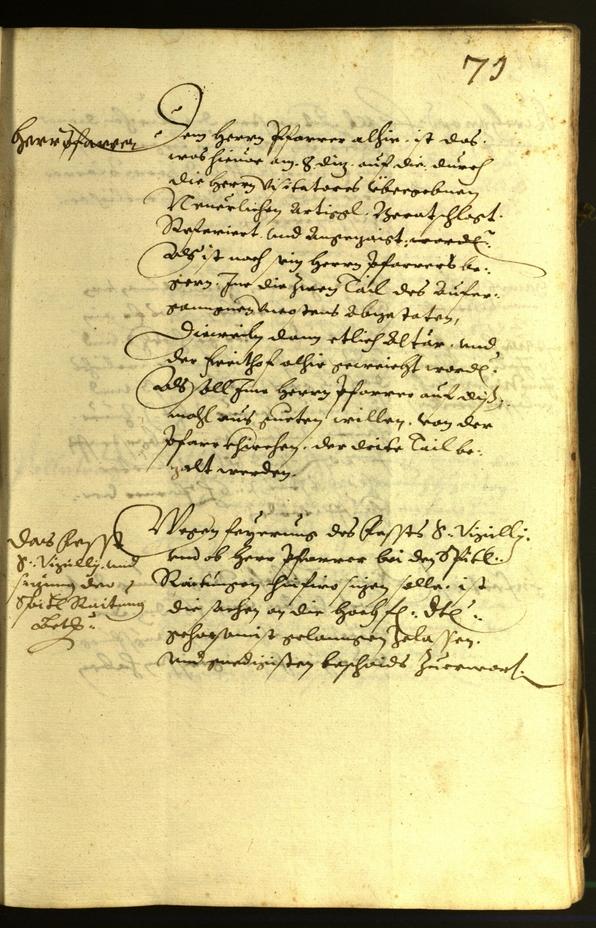 79
Herr Pfarrer
Dem Herrn Pfarrer alhie ist das
was hieuor am 8 diz auf die durch
die Herrn Visitatores übergebnen
Neuerlichen Artiggl Beratschlagt
Referiert und angezaigt worden
Als ist noch ein Herrn Pfarrers be-
gern Ime die zwen Tail des aufer-
gangnen abgetaten,
Dieweiln dann etlich Altär und
der Freithof alhie geweicht worden
Als soll Ime Herrn Pfarrer auf diz
mahl aus gueten willen von der
Pfarrkhirchen der drite Tail be-
zalt werden.
Das Fesst
S. Vigilly und
sizung der
Spitl Raitung
Betr:
Wegen feyerung des Fessts S. Vigilly
und ob Herr Pfarrer bei den Spitl
Raitungen hinfüro sizen solle ist
die sachen an die Hochfl: Dtl:
gehorsamist gelangen zelassen
und genedigisten beschaids zuerwart